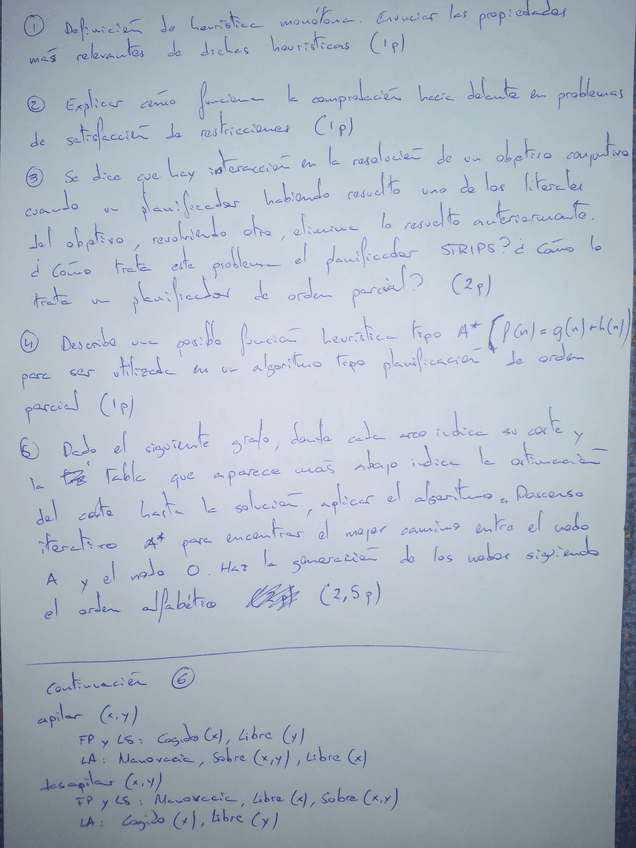 ① Definición de heurística monótona. Enunciar las propiedades
más relevantes de dichas heurísticas (1p)
② Explicar cómo funciona la comprobación hacia delante en problemas
de satisfacción de restricciones (1p)
③ Se dice que hay interacción en la resolución de un objetivo conjuntivo
cuando un planificador habiendo resuelto uno de los literales
del objetivo, resolviendo otro, elimina lo resuelto anteriormente.
¿Cómo trata este problema el planificador STRIPS? ¿Cómo lo
trata un planificador de orden parcial? (2p)
④ Describe una posible función heurística tipo A* (f(n) = g(n) + h(n))
para ser utilizada en un algoritmo tipo planificación de orden
parcial (1p)
⑤ Dado el siguiente grafo, donde cada arco indica su coste y
la tabla que aparece más abajo indica la estimación
del coste hasta la solución, aplicar el algoritmo Descenso
iterativo A* para encontrar el mejor camino entre el nodo
A y el nodo O. Haz la generación de los nodos siguiendo
el orden alfabético (2,5p)
Continuación ⑥
apilar (x,y)
FP y LS: Cogido (x), Libre (y)
LA: Manovacia, Sobre (x,y), Libre (x)
desapilar (x,y)
FP y LS: Manovacia, Libre (x), Sobre (x,y)
LA: Cogido (x), Libre (y)